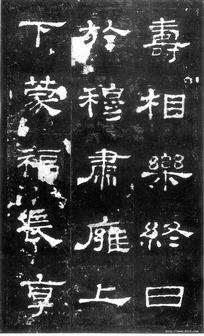 壽相樂終日
於穆肅雍上
下蒙福長享